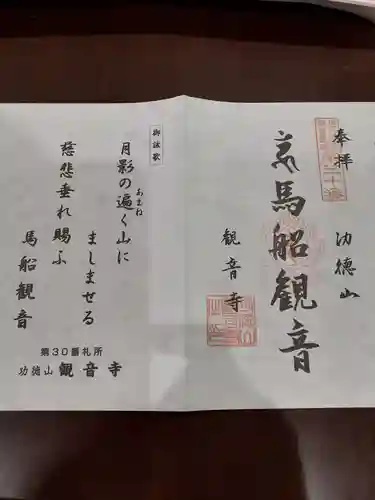 奉拝
功徳山
馬船観音
観音寺
御詠歌
月影の遍く山に
あまね
ましませる
慈悲垂れ賜ふ
馬船観音
第30番札所
功徳山 観音寺